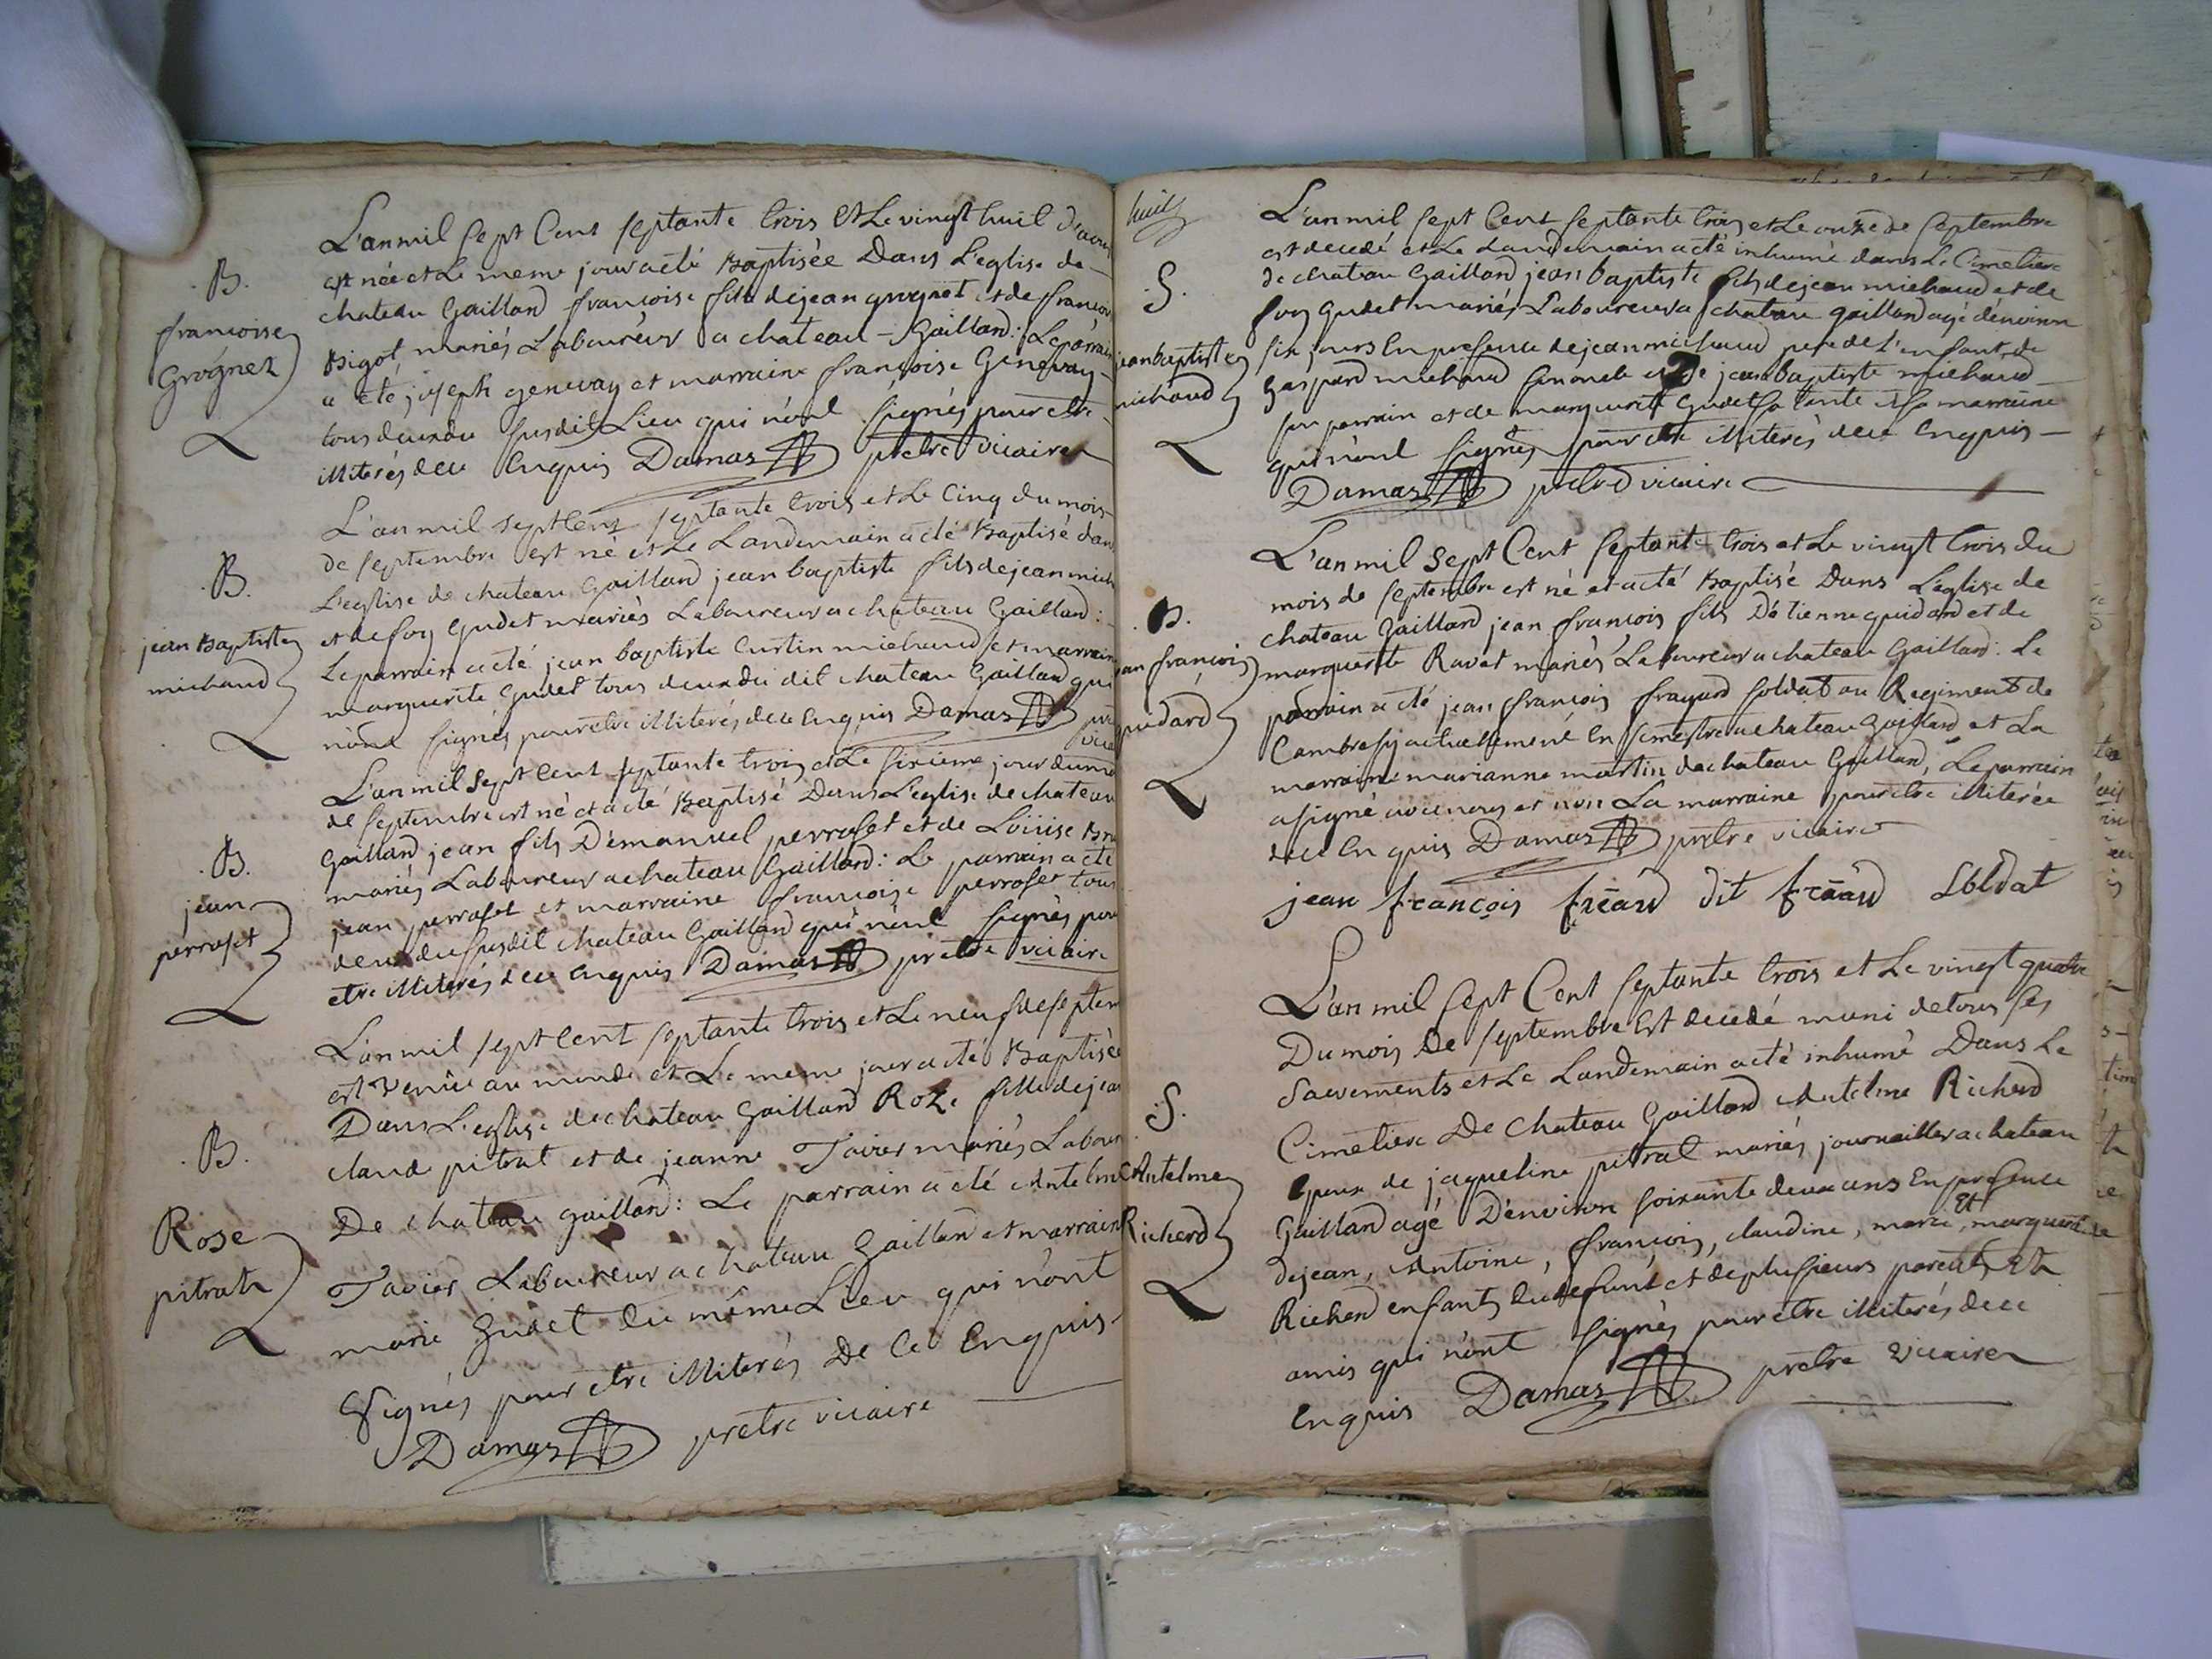 B.
françoise
Grognet
L'an mil sept Cent septante trois Et Le vingt huit d'aoust
est née et Le meme jour a été Baptisée Dans L'eglise de
chateau Gaillard françoise fille de jean grognet et de françoise
Bigot mariés Laboureur a chateau - Gaillard: Le parrain
a été joseph genevay et marraine françoise Genevay
tous deux du susdit Lieu qui n'ont signés pour etre
illiterés de ce Enquis Damas prêtre vicaire
B.
jean Baptiste
michaud
L'an mil sept Cent septante trois et Le Cinq du mois
de septembre est né et Le Landemain a été Baptisé dans
L'eglise de chateau Gaillard jean baptiste fils de jean mich
et de foy Gudet mariés Laboureur a chateau Gaillard:
Le parrain a été jean baptiste Curtin michaud et marraine
marguerite Gudet tous deux du dit chateau Gaillard qui
n'ont signés pour etre illiterés de ce Enquis Damas
B.
jean
perroset
L'an mil Sept Cent septante trois et Le sixieme jour du mois
de septembre est né et a été Baptisé Dans L'eglise de chateau
Gaillard jean fils D'emanuel perroset et de Loüise
mariés Laboureur a chateau Gaillard: Le parrain a été
jean perroset et marraine françoise perroset tous
deux du susdit chateau Gaillard qui n'ont signés pour
etre illiterés de ce Enquis Damas prêtre vicaire
B.
Rose
pitrat
L'an mil sept Cent septante trois et Le neuf de septem
est Venüe au monde et Le meme jour a été Baptisée
Dans L'eglise de chateau Gaillard Roze fille de jean
claude pitrat et de jeanne Tavier mariés Labour
De chateau gaillard: Le parrain a été Antelme
Tavier Laboureur a chateau Gaillard et marraine
marie Gudet du même Lieu qui n'ont
Signés pour etre illiterés De Ce Enquis
Damas prêtre vicaire
huit
S.
jean baptiste
michaud
L'an mil sept Cent septante trois et Le onze de septembre
est decedé et Le Landemain a été inhumé dans Le Cimetiere
de chateau Gaillard jean baptiste fils de jean michaud et de
foy Gudet mariés Laboureur a chateau gaillard agé d'environ
six jours En presence de jean michaud pere de L'enfant, de
Gaspard michaud son oncle et de jean baptiste michaud
son parrain et de marguerite Gudet sa tante et sa marraine
qui n'ont signés pour etre illiterés de ce Enquis
Damas prêtre vicaire
B.
jean françois
guidard
L'an mil Sept Cent septante trois et Le vingt trois du
mois de septembre est né et a été Baptisé Dans L'eglise de
chateau Gaillard jean françois fils D'etienne guidard et de
marguerite Ravet mariés Laboureur a chateau Gaillard: Le
parrain a été jean françois frayard soldat au Regiment de
Cambresy actuellement En semestre a chateau Gaillard et La
marraine marianne martin de chateau Gaillard, Le parrain
a signé avec nous et non La marraine pour etre illiterée
de ce Enquis Damas prêtre vicaire
jean françois dit Soldat
S.
Antelme
Richerd
L'an mil Sept Cent septante trois et Le vingt quatre
Du mois De septembre Est decedé muni de tous ses
Sacrements et Le Landemain a été inhumé Dans Le
Cimetiere De Chateau Gaillard Antelme Richerd
Epoux de jaqueline pitrat mariés journaillier a chateau
Gaillard agé D'environ soixante deux ans En presence
Et
De jean, Antoine, françois, claudine, marie, marguerite
Richerd enfants du defunt et de plusieurs parents Et
amis qui n'ont signés pour être illiterés de ce
Enquis Damas prêtre Vicaire